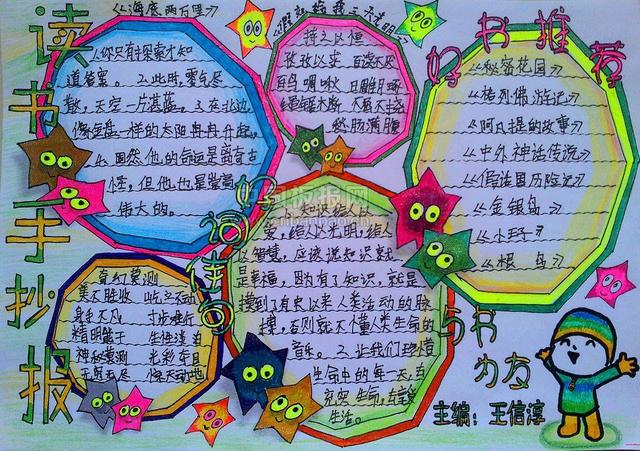 读书手抄报
《海底两万里》
1.你只有探索才知
道答案。2.此时,雾气尽
散,天空一片湛蓝。3.在北边,
像包盘一样的太阳冉冉升起,
4.固然他的命运是离奇古
怪,但他也是崇高
伟大的。
持之以恒
孜孜以求 百读不厌
百鸟啁啾 日雕月琢
不屈不挠
愁肠满腹
好书推荐
《秘密花园》
《格列佛游记》
《阿凡提的故事》
《中外神话传说》
《假话国历险记》
《金银岛》
《小王子》
《恨鸟》
奇幻莫测
美不胜收 屹立不动
身手不凡 寸步难行
精明能干
神秘莫测 光彩夺目
无穷无尽 惊天动地
好词佳句
1.知识给人以
爱,给人以光明,给人
以智慧,应该说知识就
是幸福,因为有了知识,就是
摸到了有史以来人类活动的脉
搏,否则就不懂人类生命的
音乐。2.让我们珍惜
生命中的每一天,去
充实生命,去享受
生活。
与书
为友
主编:王信淳